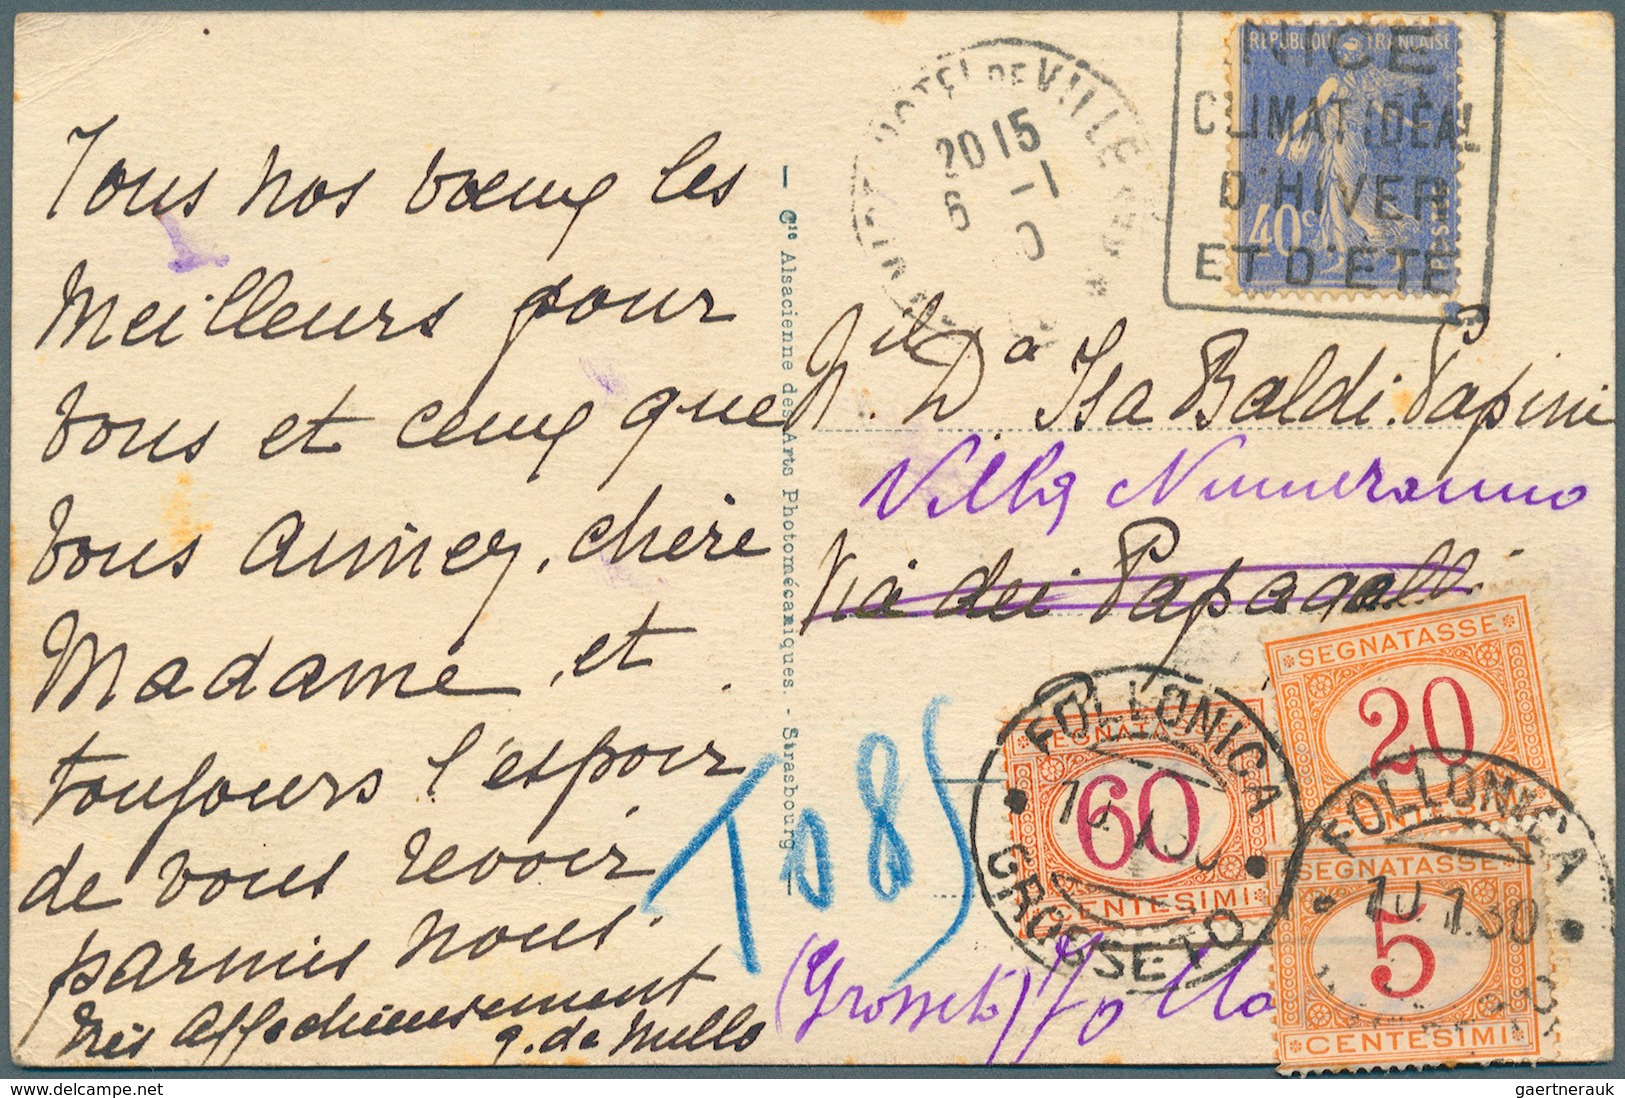 Tous nos vœux les
meilleurs pour
vous et ceux que
vous aimez, chère
Madame, et
toujours l'espoir
de vous revoir
parmis nous.
Très affectueusement
g. de Mello
— Cie Alsacienne des Arts Photomécaniques. - Strasbourg —
HOTEL DE VILLE
2015
6 -1
NICE
CLIMAT IDÉAL
D'HIVER
ET D'ÉTÉ
REPUBLIQUE FRANÇAISE
40c
POSTES
N.il Da Isa Baldi Papini
Villa
Via dei Papagalli
(Grosseto) Follo
T 0 85
T
SEGNATASSE
60
CENTESIMI
SEGNATASSE
20
CENTESIMI
SEGNATASSE
5
CENTESIMI
FOLLONICA
10.1.30
GROSSETO
FOLLONICA
10.1.30
gaertnerauk / delcampe.net